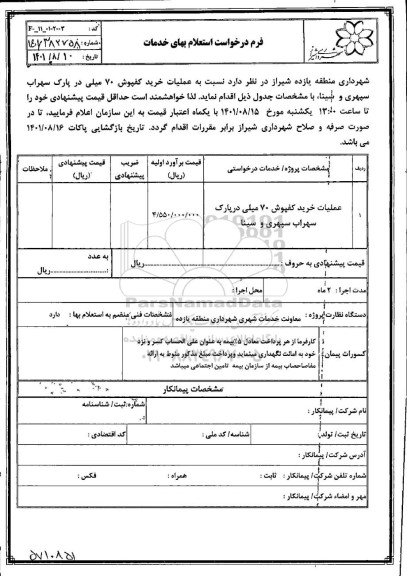 فرم درخواست استعلام بهای خدمات
کد : F-۱۱-۰۱-۲۰۰۳
شماره :
تاریخ : ۱۴۰۱/۸/۱۰
شهرداری منطقه یازده شیراز در نظر دارد نسبت به عملیات خرید کفپوش ۷۰ میلی در پارک سهراب
سپهری و سینا، با مشخصات جدول ذیل اقدام نماید. لذا خواهشمند است حداقل قیمت پیشنهادی خود را
تا ساعت ۱۳:۰۰ یکشنبه مورخ ۱۴۰۱/۰۸/۱۵ با یکماه اعتبار قیمت به این سازمان اعلام فرمایید، تا در
صورت صرفه و صلاح شهرداری شیراز برابر مقررات اقدام گردد. تاریخ بازگشایی پاکات ۱۴۰۱/۰۸/۱۶
می باشد.
ردیف مشخصات پروژه/ خدمات درخواستی قیمت برآورد اولیه (ریال) ضریب پیشنهادی قیمت پیشنهادی (ریال) ملاحظات
۱ عملیات خرید کفپوش ۷۰ میلی درپارک سهراب سپهری و سینا ۴/۵۵۰/۰۰۰/۰۰۰
قیمت پیشنهادی به حروف : ریال به عدد : ریال
مدت اجرا : ۲ ماه محل اجرا :
دستگاه نظارت پروژه : معاونت خدمات شهری شهرداری منطقه یازده مشخصات فنی منضم به استعلام بها : دارد
کسورات پیمان : کارفرما از هر پرداخت معادل ۵٪ بیمه به عنوان علی الحساب کسر و نزد
خود به امانت نگهداری مینماید وپرداخت مبلغ مذکور منوط به ارائه
مفاصاحساب بیمه از سازمان بیمه تامین اجتماعی میباشد
مشخصات پیمانکار
نام شرکت/ پیمانکار : شماره ثبت/ شناسنامه :
تاریخ ثبت/ تولد : شناسه/ کد ملی : کد اقتصادی :
آدرس شرکت/ پیمانکار :
شماره تلفن شرکت/ پیمانکار : ثابت : همراه : فکس :
مهر و امضاء شرکت/ پیمانکار :
ParsNamadData